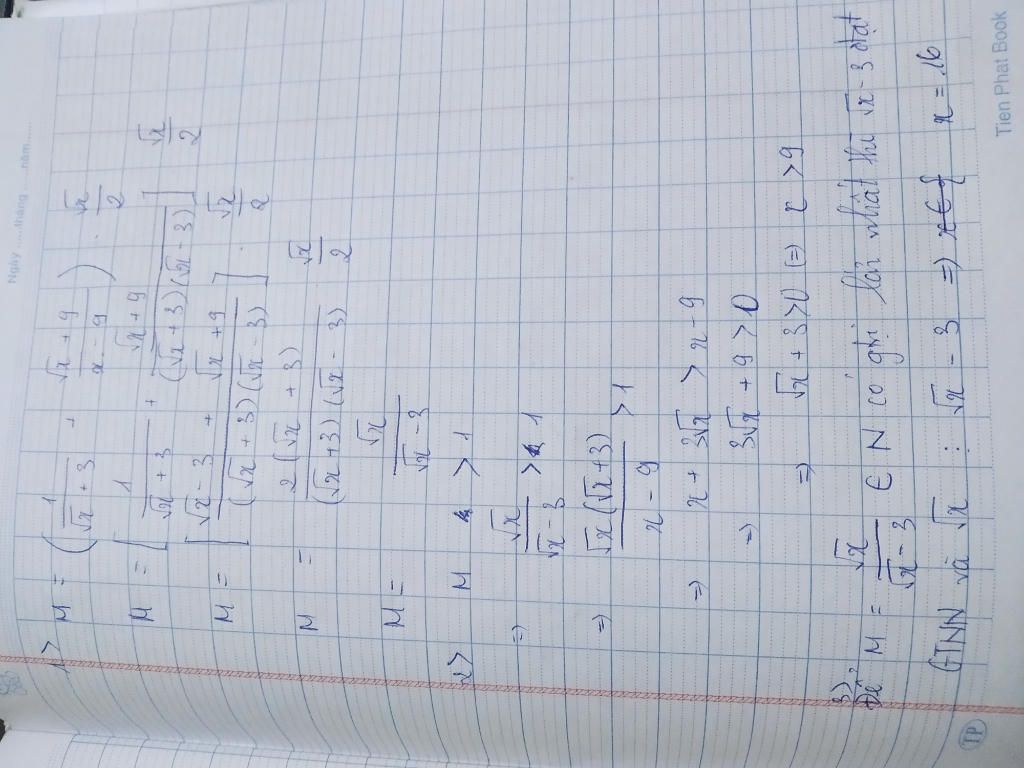 Ngày ..... tháng ..... năm.....
1> M = ( 1/(√x + 3) + (√x + 9)/(x - 9) ) . √x/2
M = [ 1/(√x + 3) + (√x + 9)/((√x + 3)(√x - 3)) ] √x/2
M = [ (√x - 3 + √x + 9)/((√x + 3)(√x - 3)) ] . √x/2
M = 2(√x + 3)/((√x + 3)(√x - 3)) √x/2
M = √x/(√x - 3)
2> M > 1
=> √x/(√x - 3) > 1
=> √x(√x + 3)/(x - 9) > 1
=> x + 3√x > x - 9
=> 3√x + 9 > 0
=> √x + 3 > 0 (=) x > 9
3)
Để M = √x/(√x - 3) ∈ N có giá trị lớn nhất thì √x - 3 đạt
GTNN và √x ⋮ √x - 3 => x ∈ { x = 16
TP
Tien Phat Book